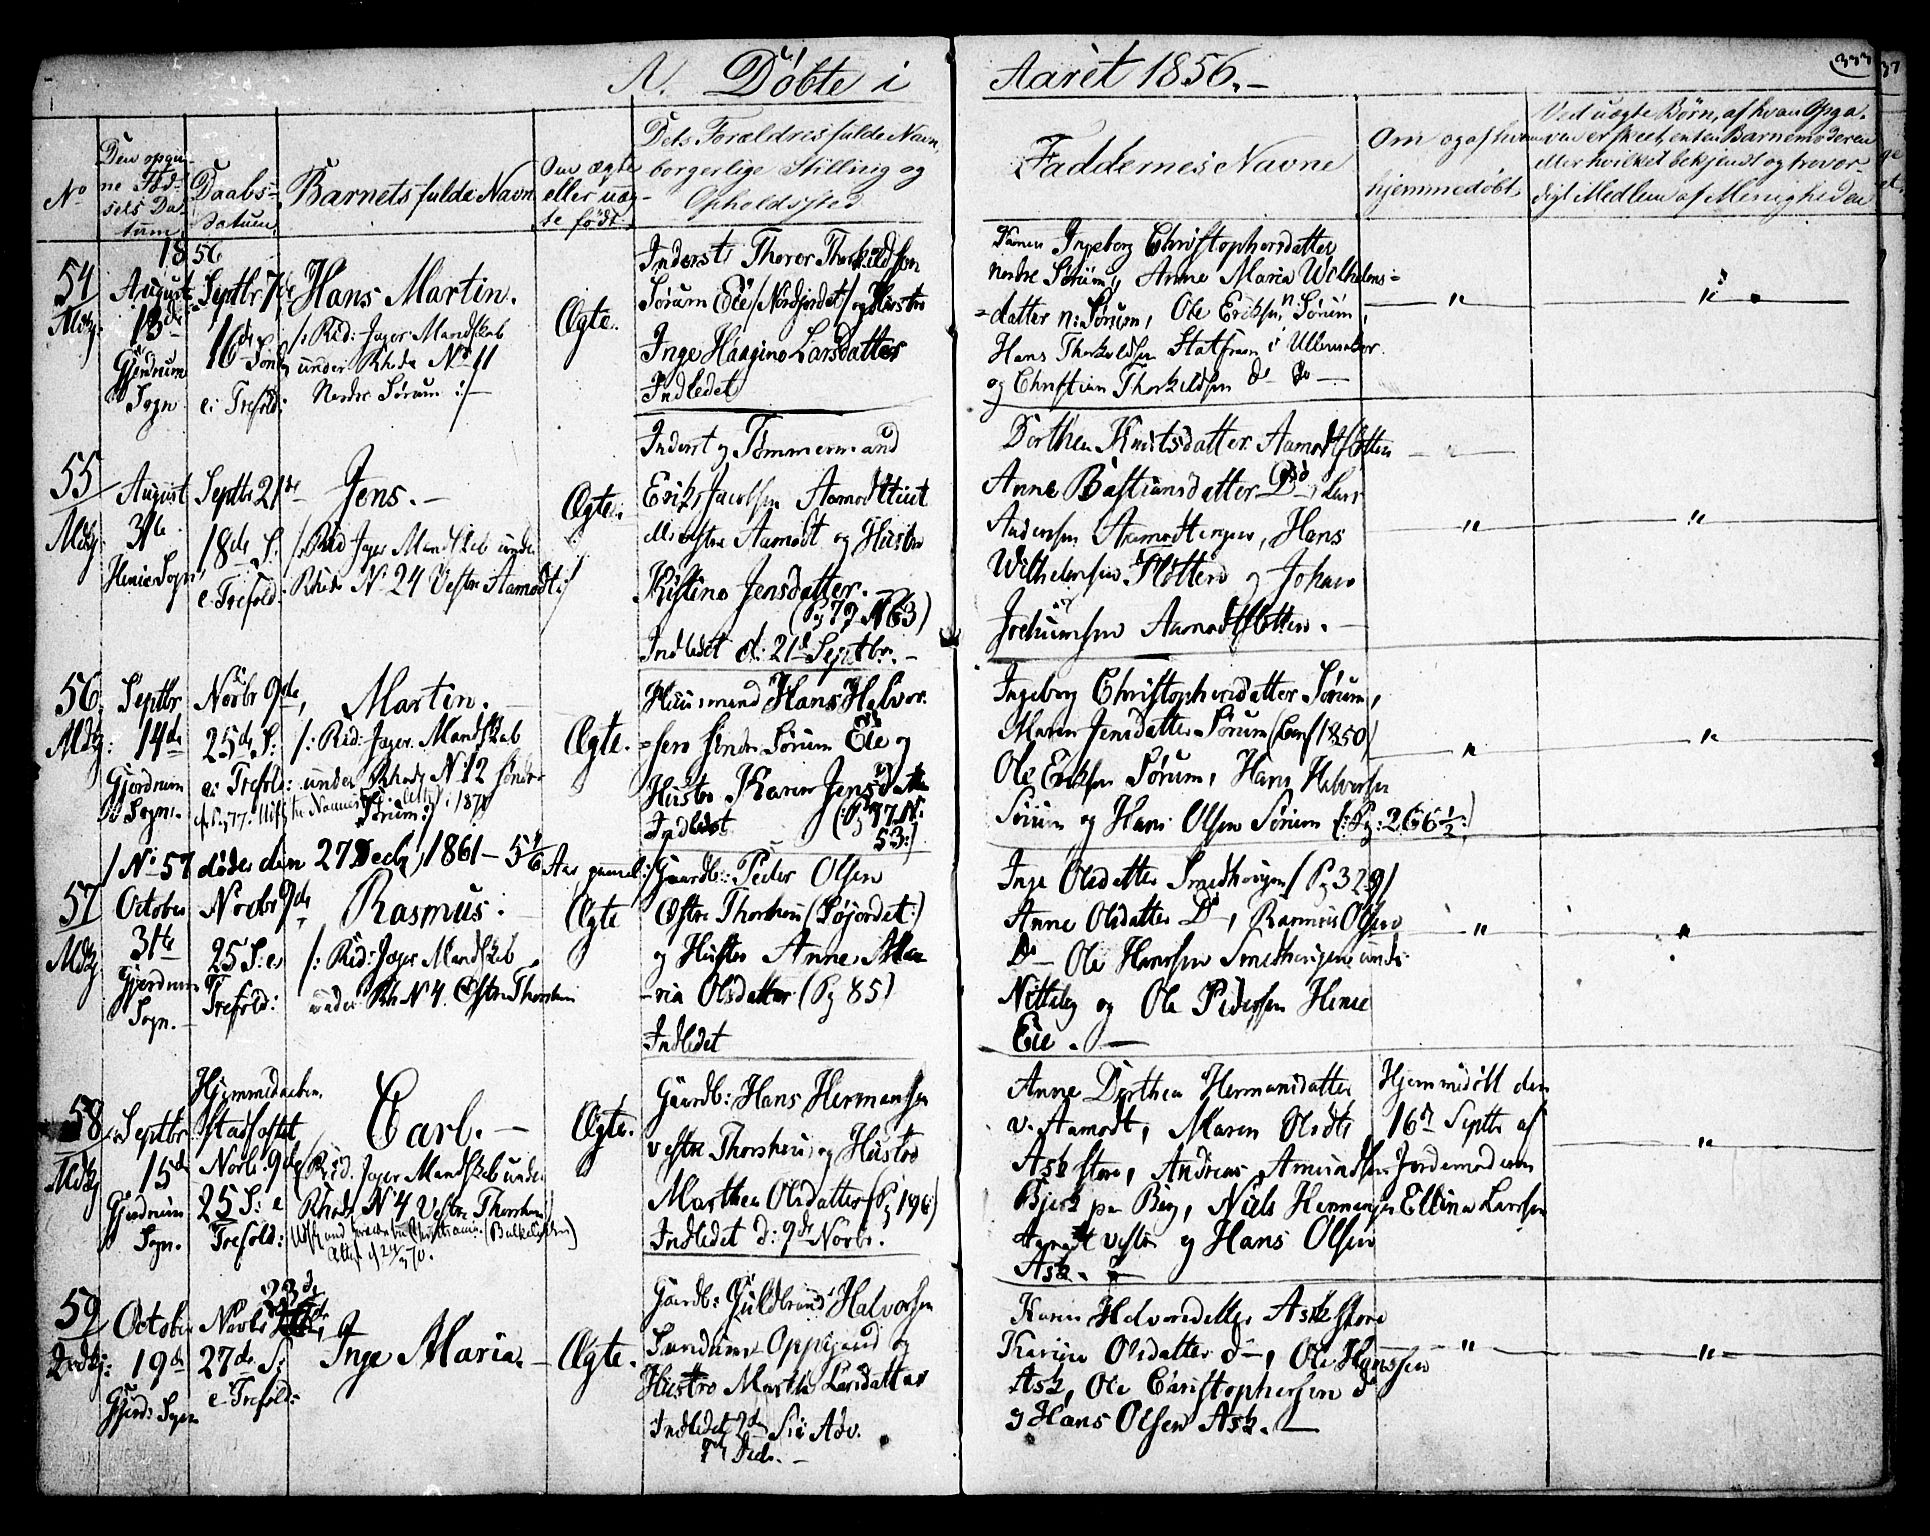 A. Döbte i Aaret 1856.-
333
No
Den opgivne Fødselsdatum
Daabsdatum
Barnets fulde Navn
Om ægte eller uægte født
Dets Forældres fulde Navn,
borgerlige Stilling og
Opholdssted
Faddernes Navne
Om og af hvem
hjemmedøbt
Ved uægte Børn, af hvem Opga-
ven er skeet, enten Barnemoderen
eller hvilket bekjendt og trovær-
digt Medlem af Menigheden
1856
54
Mdkj:
August
13de
Gjerdrum
Sogn
Septbr 7de
16de Sønd
e: Trefold:
Hans Martin.
/: Rid: Jæger Mandskab
under Rhode No 11
Nordre Sørum :/-
Ægte.
Inderst Thoror Thorkildsen
Sørum Eie /Nordjordet/ og Hustro
Inge Haagine Larsdatter
Indledet
Ingeborg Christophersdatter
nordre Sørum, Anne Maria Wilhelms-
=datter n: Sørum, Ole Eriksen n: Sørum,
Hans Thorkildsen i Ullensaker.
og Christian Thorkildsen do do -
"
"
55
Mdkj
August
31te
Henie Sogn
Septbr 21de
18de S:
e: Trefold:
Jens.-
/: Rid Jæger Mandskab under
Rhode No 24 Vestre Aamodt:/
Ægte.
Inderst og Tømmermand
Erik Jacobsen
Aamodt og Hustro
Kistine Jensdatter.
(Pg 79 N 63)
Indledet d: 21de Septbr.-
Dorthea Knudsdatter Aamodtflotten
Anne Bastiansdatter Do, Lars
Andersen Aamodtengen, Hans
Wilhelmsen Flotten og Johan
Jochumsen Aamodtflotten.-
"
"
56.
Mdkj:
Septbr
14de
Gjerdrum
Sogn.
Novbr 9de,
25de S:
e: Trefold:
Martin.
/: Rid: Jæger Mandskab
under Rhode N 12 søndre
Sørum:/
Ægte.
Huusmand Hans Halvor-
=sen søndre Sørum Eie og
Hustro Karen Jensdatter
Indledet
(: Pg 37 N:
53:)
Ingeborg Christophersdatter Sørum,
Maren Jensdatter Sørum (Conf 1850)
Ole Eriksen Sørum, Hans Halvorsen
Sørum og Hans Olsen Sørum (: Pg: 266½:)
"
"
/No 57 døde den 27 Decbr, 1861 - 5 1/6 Aar gammel:/
57
Mdkj
October
31te
Gjerdrum
Sogn.
Novbr 9de
25 S: e
Trefold:
Rasmus.
/: Rid: Jæger Mandskab
under Rh N 4. Østre Thorshem
Ægte
Gaardb: Peder Olsen
Østre Thorshem (Søjordet:)
og Hustro Anne Ma-
-ria Olsdatter (Pg 85)
Indledet
Inge Olsdatter Smedhougen (Pg 329)
Anne Olsdatter Do, Rasmus Olsen
Do- Ole Hanssen Smedhougen under
Nitteberg og Ole Pedersen Henie
Eie.-
"
"
58
Mdkj
Septbr
15de
Gjerdrum
Sogn.
Hjemmedaaben
stadfæstet
Novbr: 9de
25 S: e
Trefold:
Carl.-
(: Rid: Jæger Mandskab under
Rhode N 4 Vestre Thorshem
Ægte.
Gaardb: Hans Hermansen
vestre Thorshem og Hustro
Marthea Olsdatter (Pg 198)
Indledet d: 9de Novbr.
Anne Dorthea Hermansdatter
v. Aamodt, Maren Olsdtr
Ask store, Andreas Amundsen
Bjerk pr Berg, Niels Hermansen
Aamodt vestre og Hans Olsen
Ask.
Hjemmedøbt den
16de Septbr af
Jordemoderen
Elline Larssen
"
59
October
19de
Gjerd: Sogn
23de
Novbr
27de S:
e Trefold:
Inge Maria.-
Ægte.
Gaardb: Guldbrand Halvorsen
Oppigaard og
Hustro Marthe Larsdatter
Indledet 2den Sø: i Adv.
7de Decbr.-
Karen Halvorsdatter Ask store
Karine Olsdatter do, Ole Hanssen
Ask, Ole Christophersen do
og Hans Olsen Ask.-
"
"